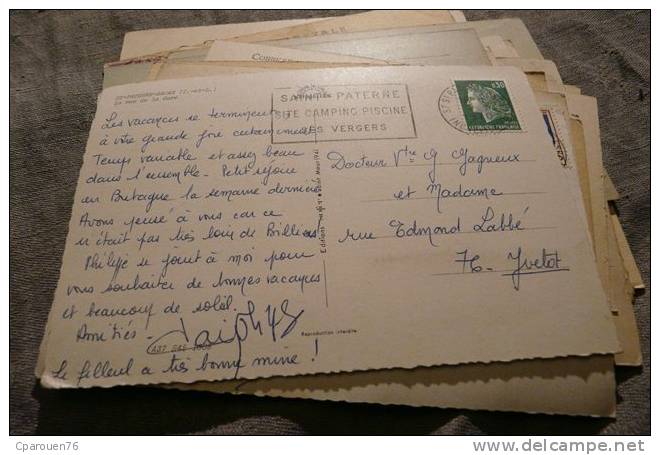 SAINT PATERNE
SITE CAMPING PISCINE
LES VERGERS
0,30
Les vacances se terminent
à votre grande joie certainement
Temps variable et assez beau
dans l'ensemble - Petit séjour
en Bretagne la semaine dernière
Avons pensé à vous car ce
n'était pas très loin de
Philippe se joint à moi pour
vous souhaiter de bonnes vacances
et beaucoup de soleil.
Amitiés -
Le filleul a très bonne mine !
Reproduction interdite
Docteur Vtre G Gagneux
et Madame
rue Edmond Labbé
76 - Yvetot
Cparouen76